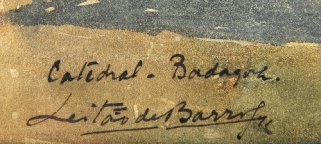 Catedral - Badajoz.
Leitão de Barros